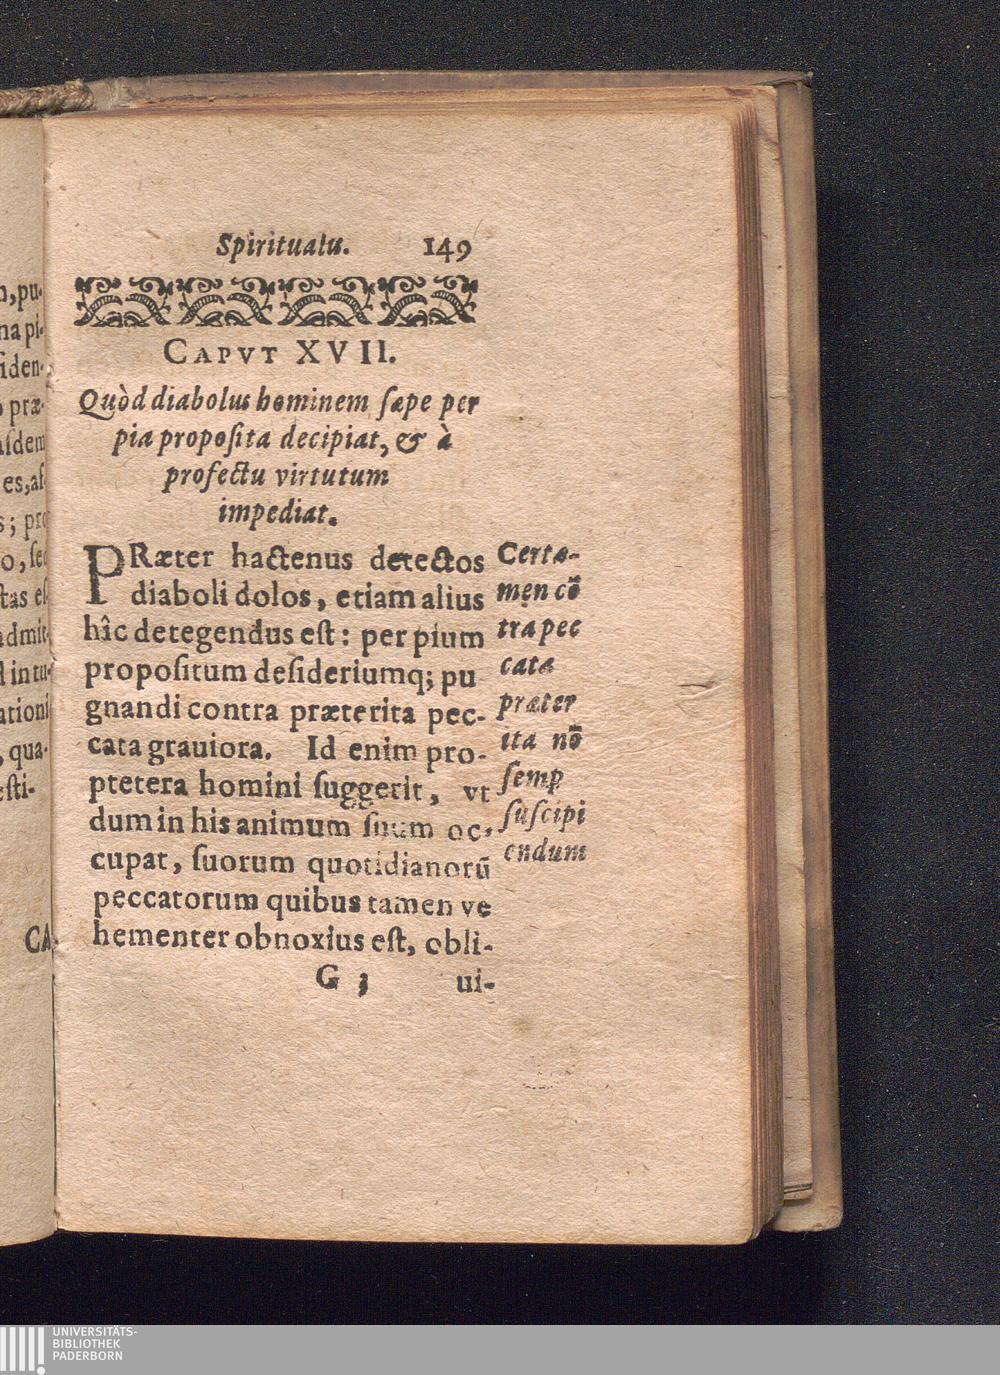 Spiritualis. 149
CAPVT XVII.
Quòd diabolus hominem sæpe per
pia proposita decipiat, & à
profectu virtutum
impediat.
PRæter hactenus detectos
diaboli dolos, etiam alius
hîc detegendus est: per pium
propositum desideriumq; pu
gnandi contra præterita pec-
cata grauiora. Id enim pro-
ptetera homini suggerit, vt
dum in his animum suum oc-
cupat, suorum quotidianorũ
peccatorum quibus tamen ve
hementer obnoxius est, obli-
G 3 ui-
Certa-
men cō
tra pec
cata
præter
ita nō
semp
suscipi
endum
n, pu-
na pi-
siden-
o præ-
asdem
es, as
s; pro
o, sed
admit-
l in tu-
ationi
, qua-
esti-
CA-
UNIVERSITÄTS-
BIBLIOTHEK
PADERBORN